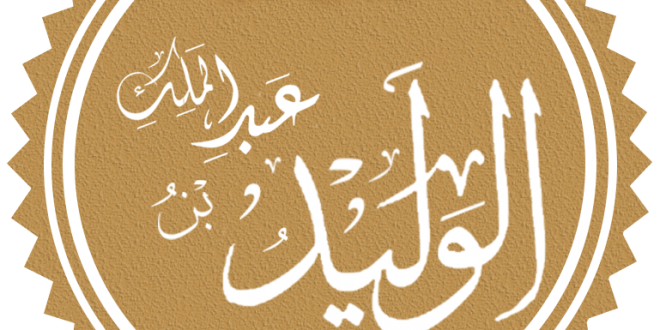 الوَليدُ بْنُ
عَبدِ المَلِكِ